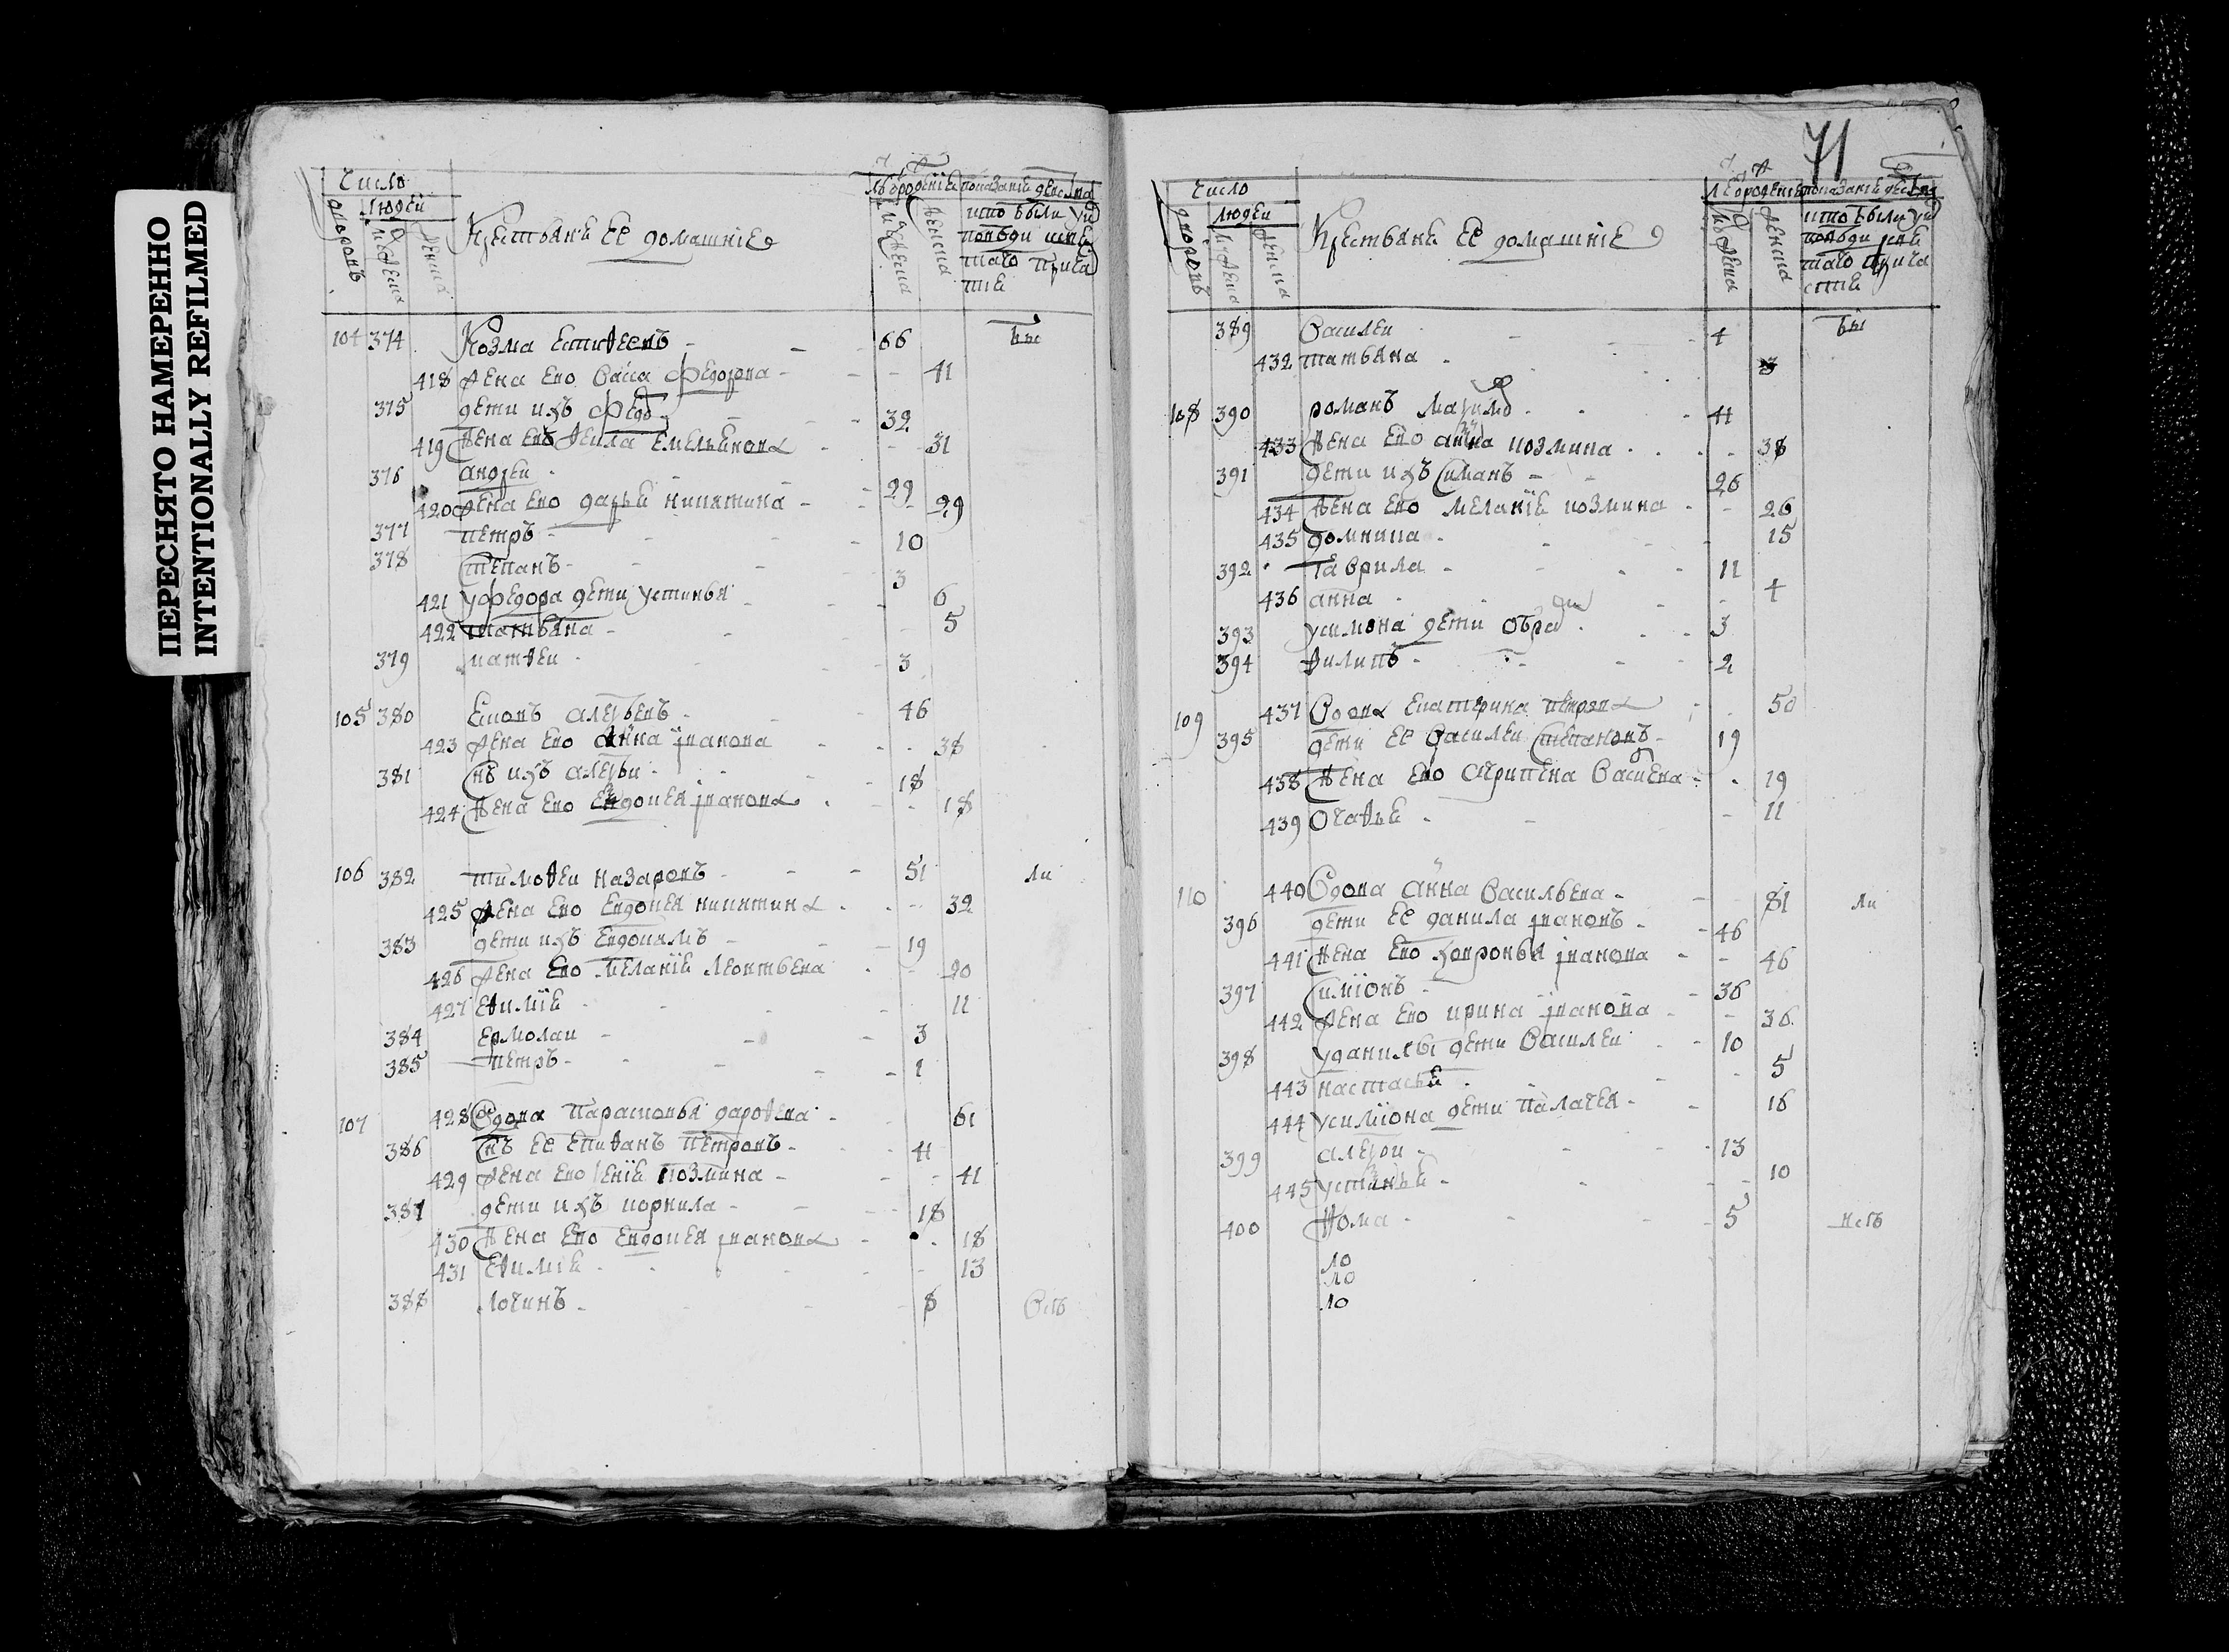 ПЕРЕСНЯТО НАМЕРЕННО
INTENTIONALLY REFILMED
Число
дворовъ
людей
Крестьянѣ ее домашніе
кто были у
исповѣди
104 374 Козма 66 бы
418 жена ево Васа Федорова 41
375 дети ихъ Федо 32
419 жена ево Фекла Емельянова 31
376 андреи 29
420 жена ево дарья никитина 29
377 петръ 10
378 степанъ 3
421 у Федора дети устинья 6
422 татьяна 5
379 матѳеи 3
105 380 46
423 жена ево анна іванова 38
381 снъ ихъ алеѯеи 18
424 жена ево евдокея іванова 18
106 382 тимоѳеи назаровъ 51 ли
425 жена ево евдокея никитина 32
383 дети ихъ евдокимъ 19
426 жена ево меланія леонтьева 20
427 еѳимія 11
384 ермолаи 3
385 петръ 1
107 428 вдова парасковья дороѳева 61
386 снъ ее епиѳанъ петровъ 41
429 жена ево козмина 41
387 дети ихъ корнила 18
430 жена ево евдокея іванова 18
431 еѳимія 13
388 логинъ 8 всѣ
71
Число
дворовъ
людей
Крестьянѣ ее домашніе
кто были у
исповѣди
389 Василеи 4 бы
432 татьяна 3
108 390 романъ 41
433 жена ево анна козмина 38
391 дети ихъ симанъ 26
434 жена ево меланія козмина 26
435 домника 15
392 гаврила 11
436 анна 4
393 у симона дети 3
394 ѳилипъ 2
109 437 вдова екатерина петрова 50
395 дети ее Василеи степановъ 19
438 жена ево агрипена Васиева 19
439 огаѳья 11
110 440 вдова анна Васильева 81 ли
396 дети ее данила івановъ 46
441 жена ево хавронья іванова 46
397 симіонъ 36
442 жена ево ирина іванова 36
398 у данилы дети Василеи 10
443 настасья 5
444 у симіона дети палагея 16
399 алеѯеи 13
445 устинья 10
400 ѳома 5